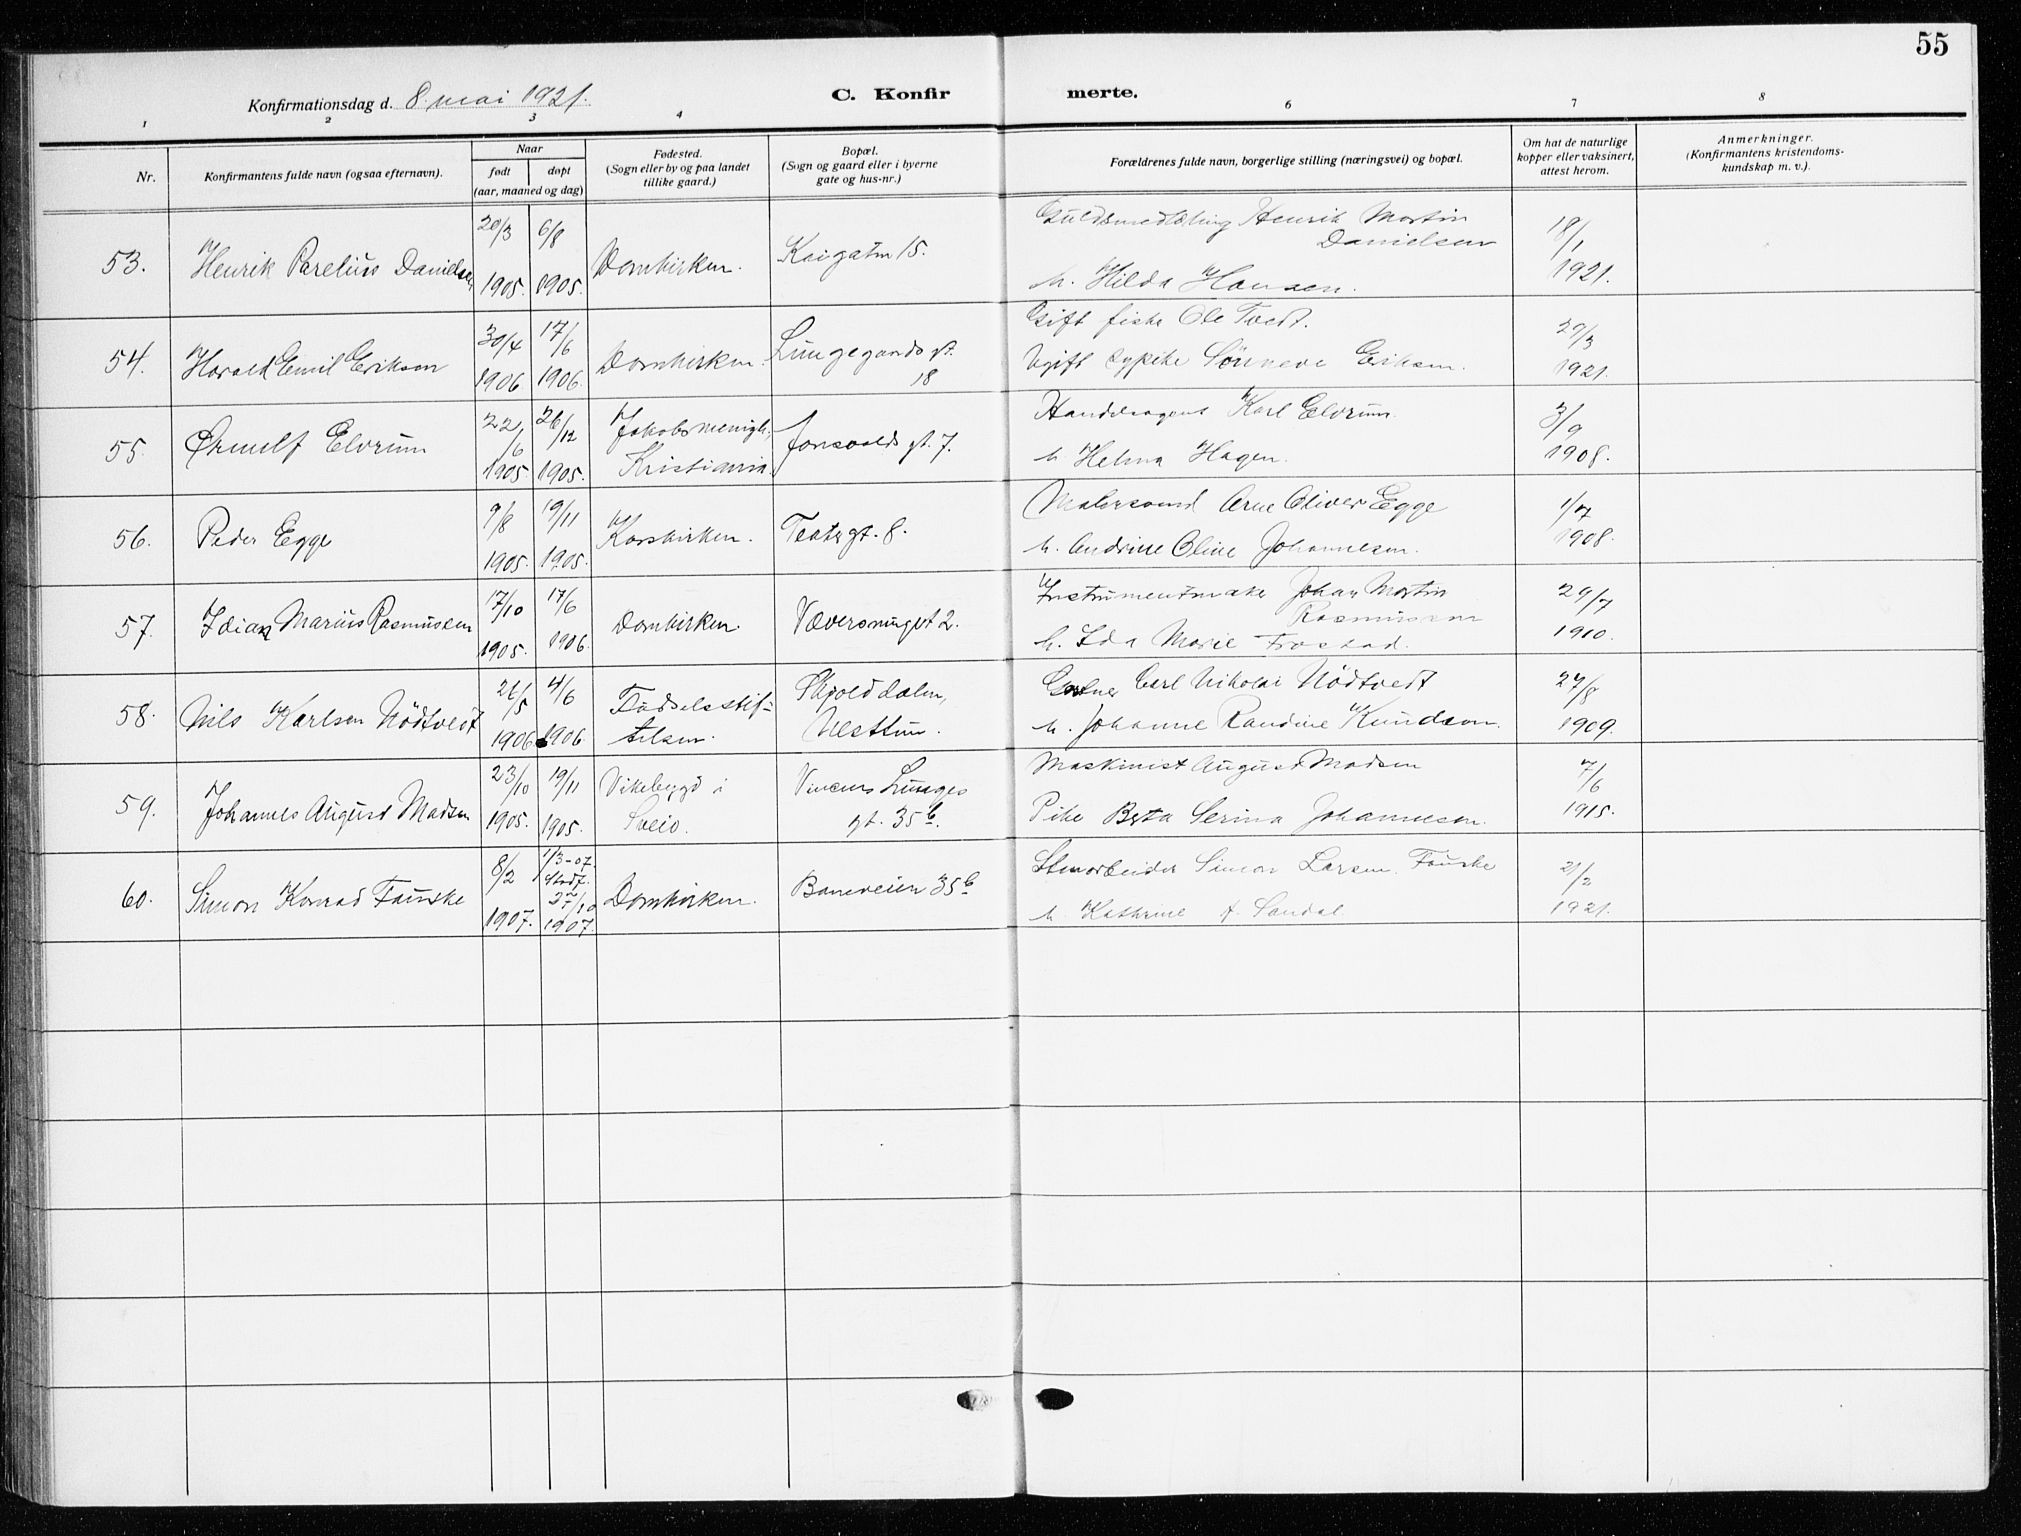 55
Konfirmationsdag d. 8. mai 1921.
C. Konfir merte.
1 2 3 4 6 7 8
Nr.
Konfirmantens fulde navn (ogsaa efternavn).
Naar
født døpt
(aar, maaned og dag)
Fødested.
(Sogn eller by og paa landet
tillike gaard.)
Bopæl.
(Sogn og gaard eller i byerne
gate og hus-nr.)
Forældrenes fulde navn, borgerlige stilling (næringsvei) og bopæl.
Om hat de naturlige
kopper eller vaksinert,
attest herom.
Anmerkninger.
(Konfirmantens kristendoms-
kundskap m. v.).
53. Henrik Parelius Danielsen
20/3 1905. 6/8 1905.
Domkirken.
Kaigatn 15.
Henrik Martin
Danielsen
h. Hilda Hansen.
18/1 1921.
54. Harald Emil Erikson
30/4 1906 17/6 1906.
Domkirken.
Lungegaards gt.
18
Gift fisker Ole Tvedt.
Ugift sypike Sönneve Eriksen.
29/3 1921.
55. Ørnulf Elvrum
22/6 1905 26/12 1905.
Jakobs menigh.,
Kristiania.
Jonsvolds gt. 7.
Handelsagent Karl Elvrum.
h. Helma Hagen.
3/9 1908.
56. Peder Egge
9/8 1905. 19/11 1905.
Korskirken.
Teatergt. 8.
Malersvend Arne Oliver Egge
h. Andrine Oline Johannesen.
1/7 1908.
57. Marius Rasmussen
17/10 1905. 17/6 1906.
Domkirken.
Væversmuget 2.
Instrumentmaker Johan Martin
Rasmussen
h. Ida Marie Frostad.
29/7 1910.
58. Nils Karlsen Nödtvedt
26/5 1906 4/6 1906.
Födselsstif-
telsen.
Skjolddalen,
Nesttun.
Gartner Carl Nikolai Nödtvedt
h. Johanne Randine Knudsen.
27/8 1909.
59. Johannes August Madsen
23/10 1905. 19/11 1905.
Vikebygd i
Sveio.
Vincens Lunges
gt. 35 b.
Maskinist August Madsen
Pike Berta Serina Johannesen.
7/6 1915.
60. Simon Konrad Fauske
8/2 1907. 1/3-07.
Stadf.
27/10 1907.
Domkirken.
Baneveien 35 b
Stenarbeider Simon Larsen Fauske
h. Kathrine f. Sandal.
21/2 1921.